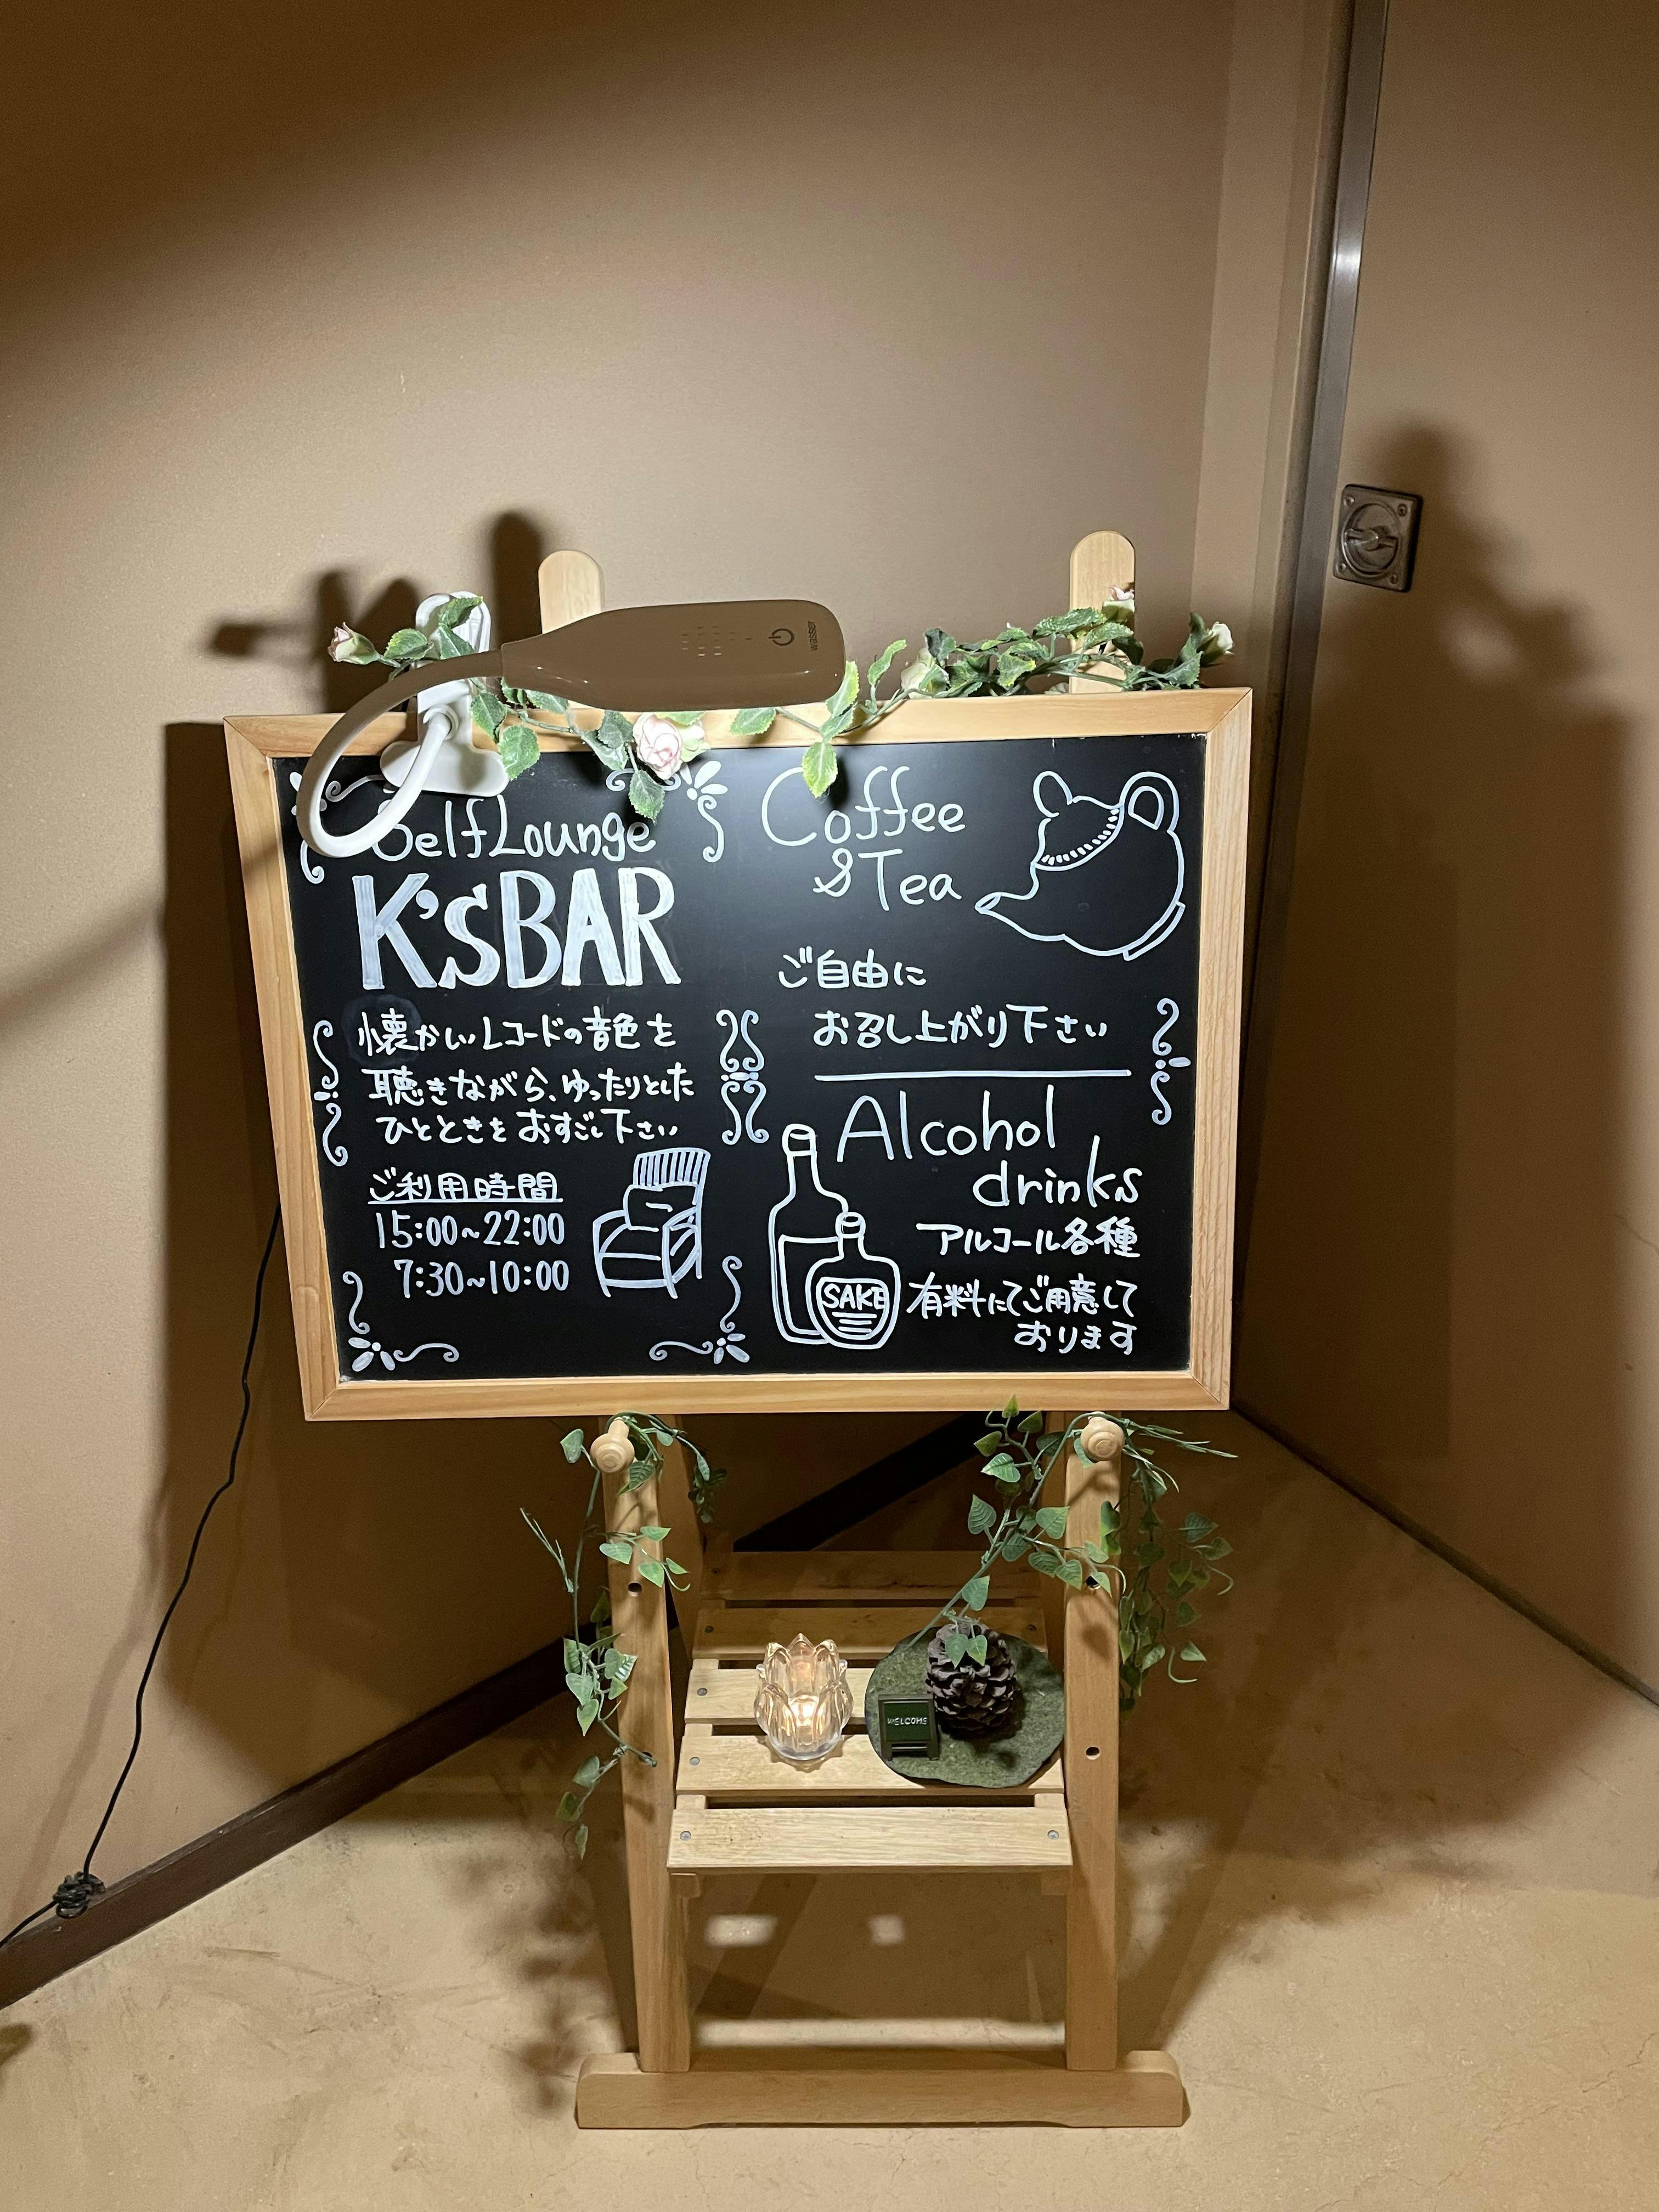 wasser
Self Lounge
K's BAR
懐かしいレコードの音色を
聴きながら、ゆったりとした
ひとときをおすごし下さい
ご利用時間
15:00~22:00
7:30~10:00
Coffee
&Tea
ご自由に
お召し上がり下さい
Alcohol
drinks
アルコール各種
有料にてご用意して
おります
SAKE
WELCOME